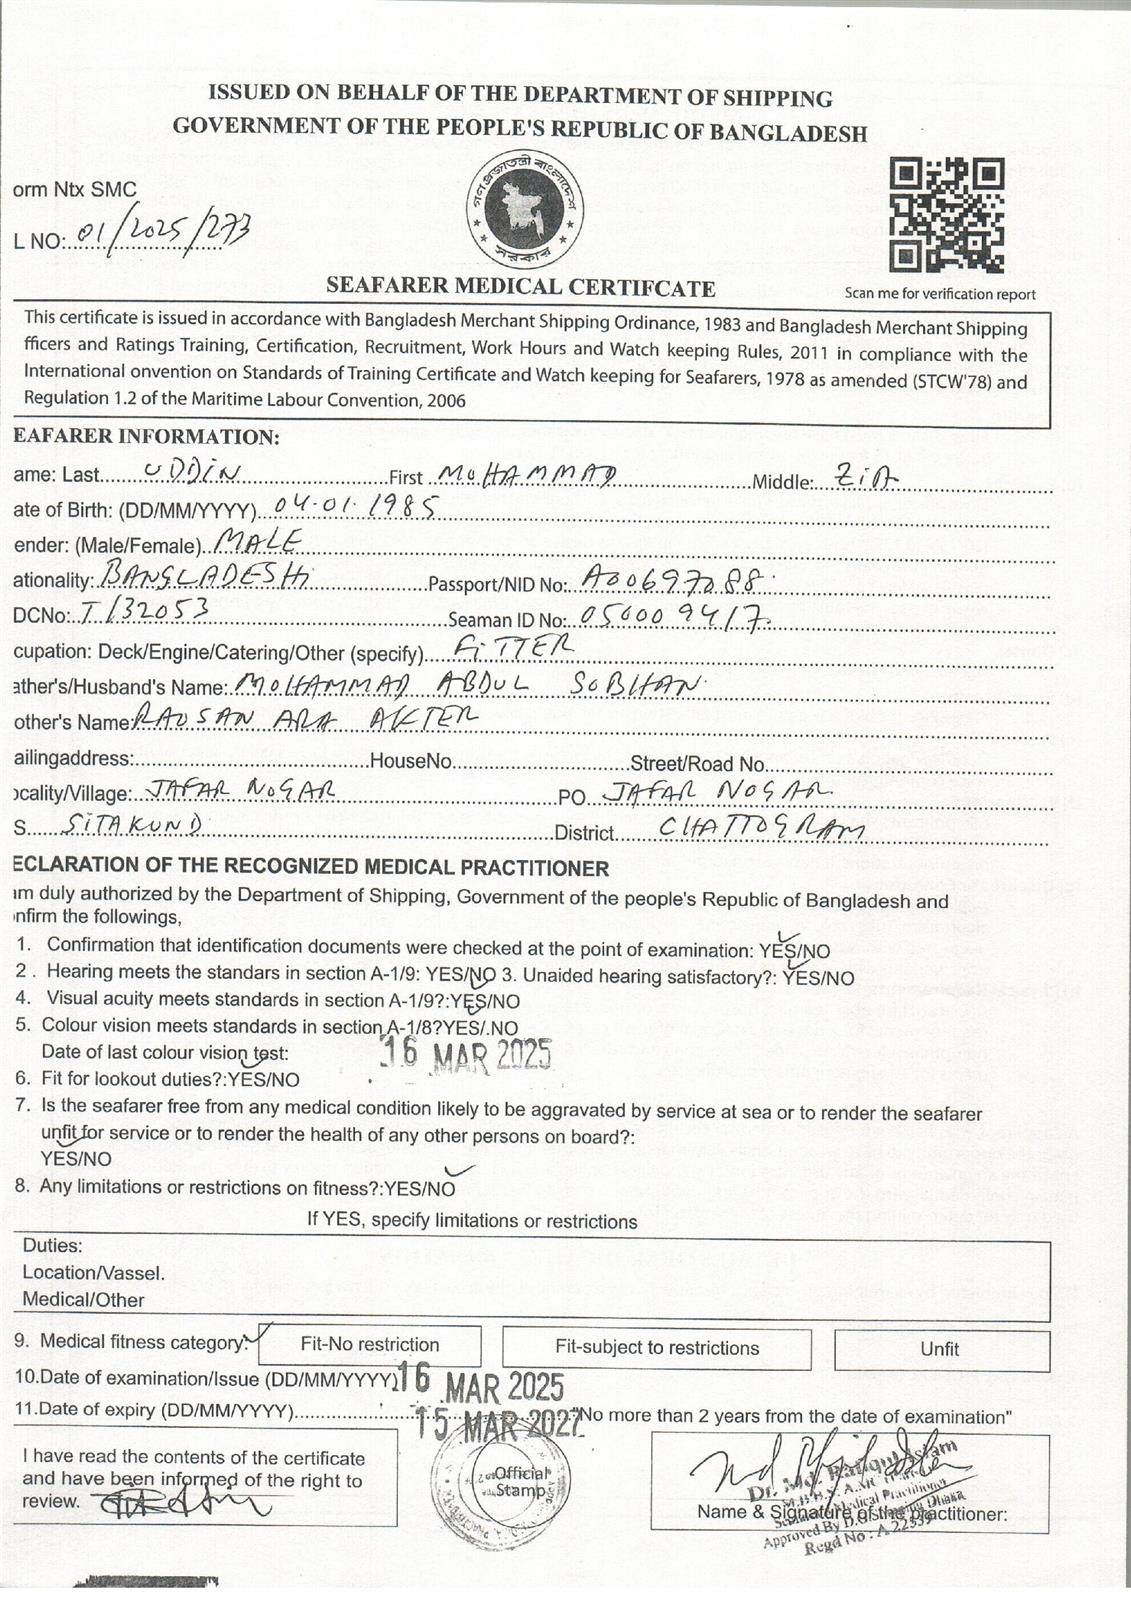 ISSUED ON BEHALF OF THE DEPARTMENT OF SHIPPING
GOVERNMENT OF THE PEOPLE'S REPUBLIC OF BANGLADESH
গণপ্রজাতন্ত্রী বাংলাদেশ
সরকার
orm Ntx SMC
L NO: 01/2025/273
SEAFARER MEDICAL CERTIFCATE
Scan me for verification report
This certificate is issued in accordance with Bangladesh Merchant Shipping Ordinance, 1983 and Bangladesh Merchant Shipping
fficers and Ratings Training, Certification, Recruitment, Work Hours and Watch keeping Rules, 2011 in compliance with the
International onvention on Standards of Training Certificate and Watch keeping for Seafarers, 1978 as amended (STCW'78) and
Regulation 1.2 of the Maritime Labour Convention, 2006
EAFARER INFORMATION:
ame: Last UDDIN First MOHAMMAD Middle: ZIA
ate of Birth: (DD/MM/YYYY) 04.01.1985
ender: (Male/Female) MALE
ationality: BANGLADESHI Passport/NID No: A00697088
DCNo: T/32053 Seaman ID No: 050009417
cupation: Deck/Engine/Catering/Other (specify) FITTER
ather's/Husband's Name: MOHAMMAD ABDUL SOBHAN
other's Name: RAUSAN ARA AKTER
ailingaddress: HouseNo Street/Road No
ocality/Village: JAFAR NOGAR PO JAFAR NOGAR
S SITAKUND District CHATTOGRAM
ECLARATION OF THE RECOGNIZED MEDICAL PRACTITIONER
am duly authorized by the Department of Shipping, Government of the people's Republic of Bangladesh and
onfirm the followings,
1. Confirmation that identification documents were checked at the point of examination: YES/NO
2 . Hearing meets the standars in section A-1/9: YES/NO 3. Unaided hearing satisfactory?: YES/NO
4. Visual acuity meets standards in section A-1/9?:YES/NO
5. Colour vision meets standards in section A-1/8?YES/.NO
Date of last colour vision test: 16 MAR 2025
6. Fit for lookout duties?:YES/NO
7. Is the seafarer free from any medical condition likely to be aggravated by service at sea or to render the seafarer
unfit for service or to render the health of any other persons on board?:
YES/NO
8. Any limitations or restrictions on fitness?:YES/NO
If YES, specify limitations or restrictions
Duties:
Location/Vassel.
Medical/Other
9. Medical fitness category: Fit-No restriction Fit-subject to restrictions Unfit
10.Date of examination/Issue (DD/MM/YYYY) 16 MAR 2025
11.Date of expiry (DD/MM/YYYY) 15 MAR 2027 "No more than 2 years from the date of examination"
I have read the contents of the certificate
and have been informed of the right to
review.
Official
Stamp
Dr. Md. Rafiqul Islam
Name & Signature of the practitioner:
Approved By D.G. Shipping Dhaka
Regd No : A 22539